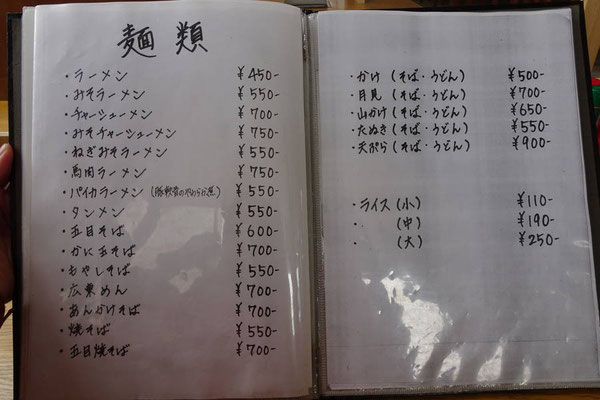 麺類
・ラーメン ¥450-
・みそラーメン ¥550-
・チャーシューメン ¥700-
・みそチャーシューメン ¥750-
・ねぎみそラーメン ¥550-
・馬肉ラーメン ¥750-
・パイカラーメン (豚軟骨のやわらか煮) ¥550-
・タンメン ¥550-
・五目そば ¥600-
・かに玉そば ¥700-
・もやしそば ¥550-
・広東めん ¥700-
・あんかけそば ¥700-
・焼そば ¥550-
・五目焼そば ¥700-
・かけ (そば・うどん) ¥500-
・月見 (そば・うどん) ¥700-
・山かけ (そば・うどん) ¥650-
・たぬき (そば・うどん) ¥550-
・天ぷら (そば・うどん) ¥900-
・ライス (小) ¥110-
・ (中) ¥190-
・ (大) ¥250-